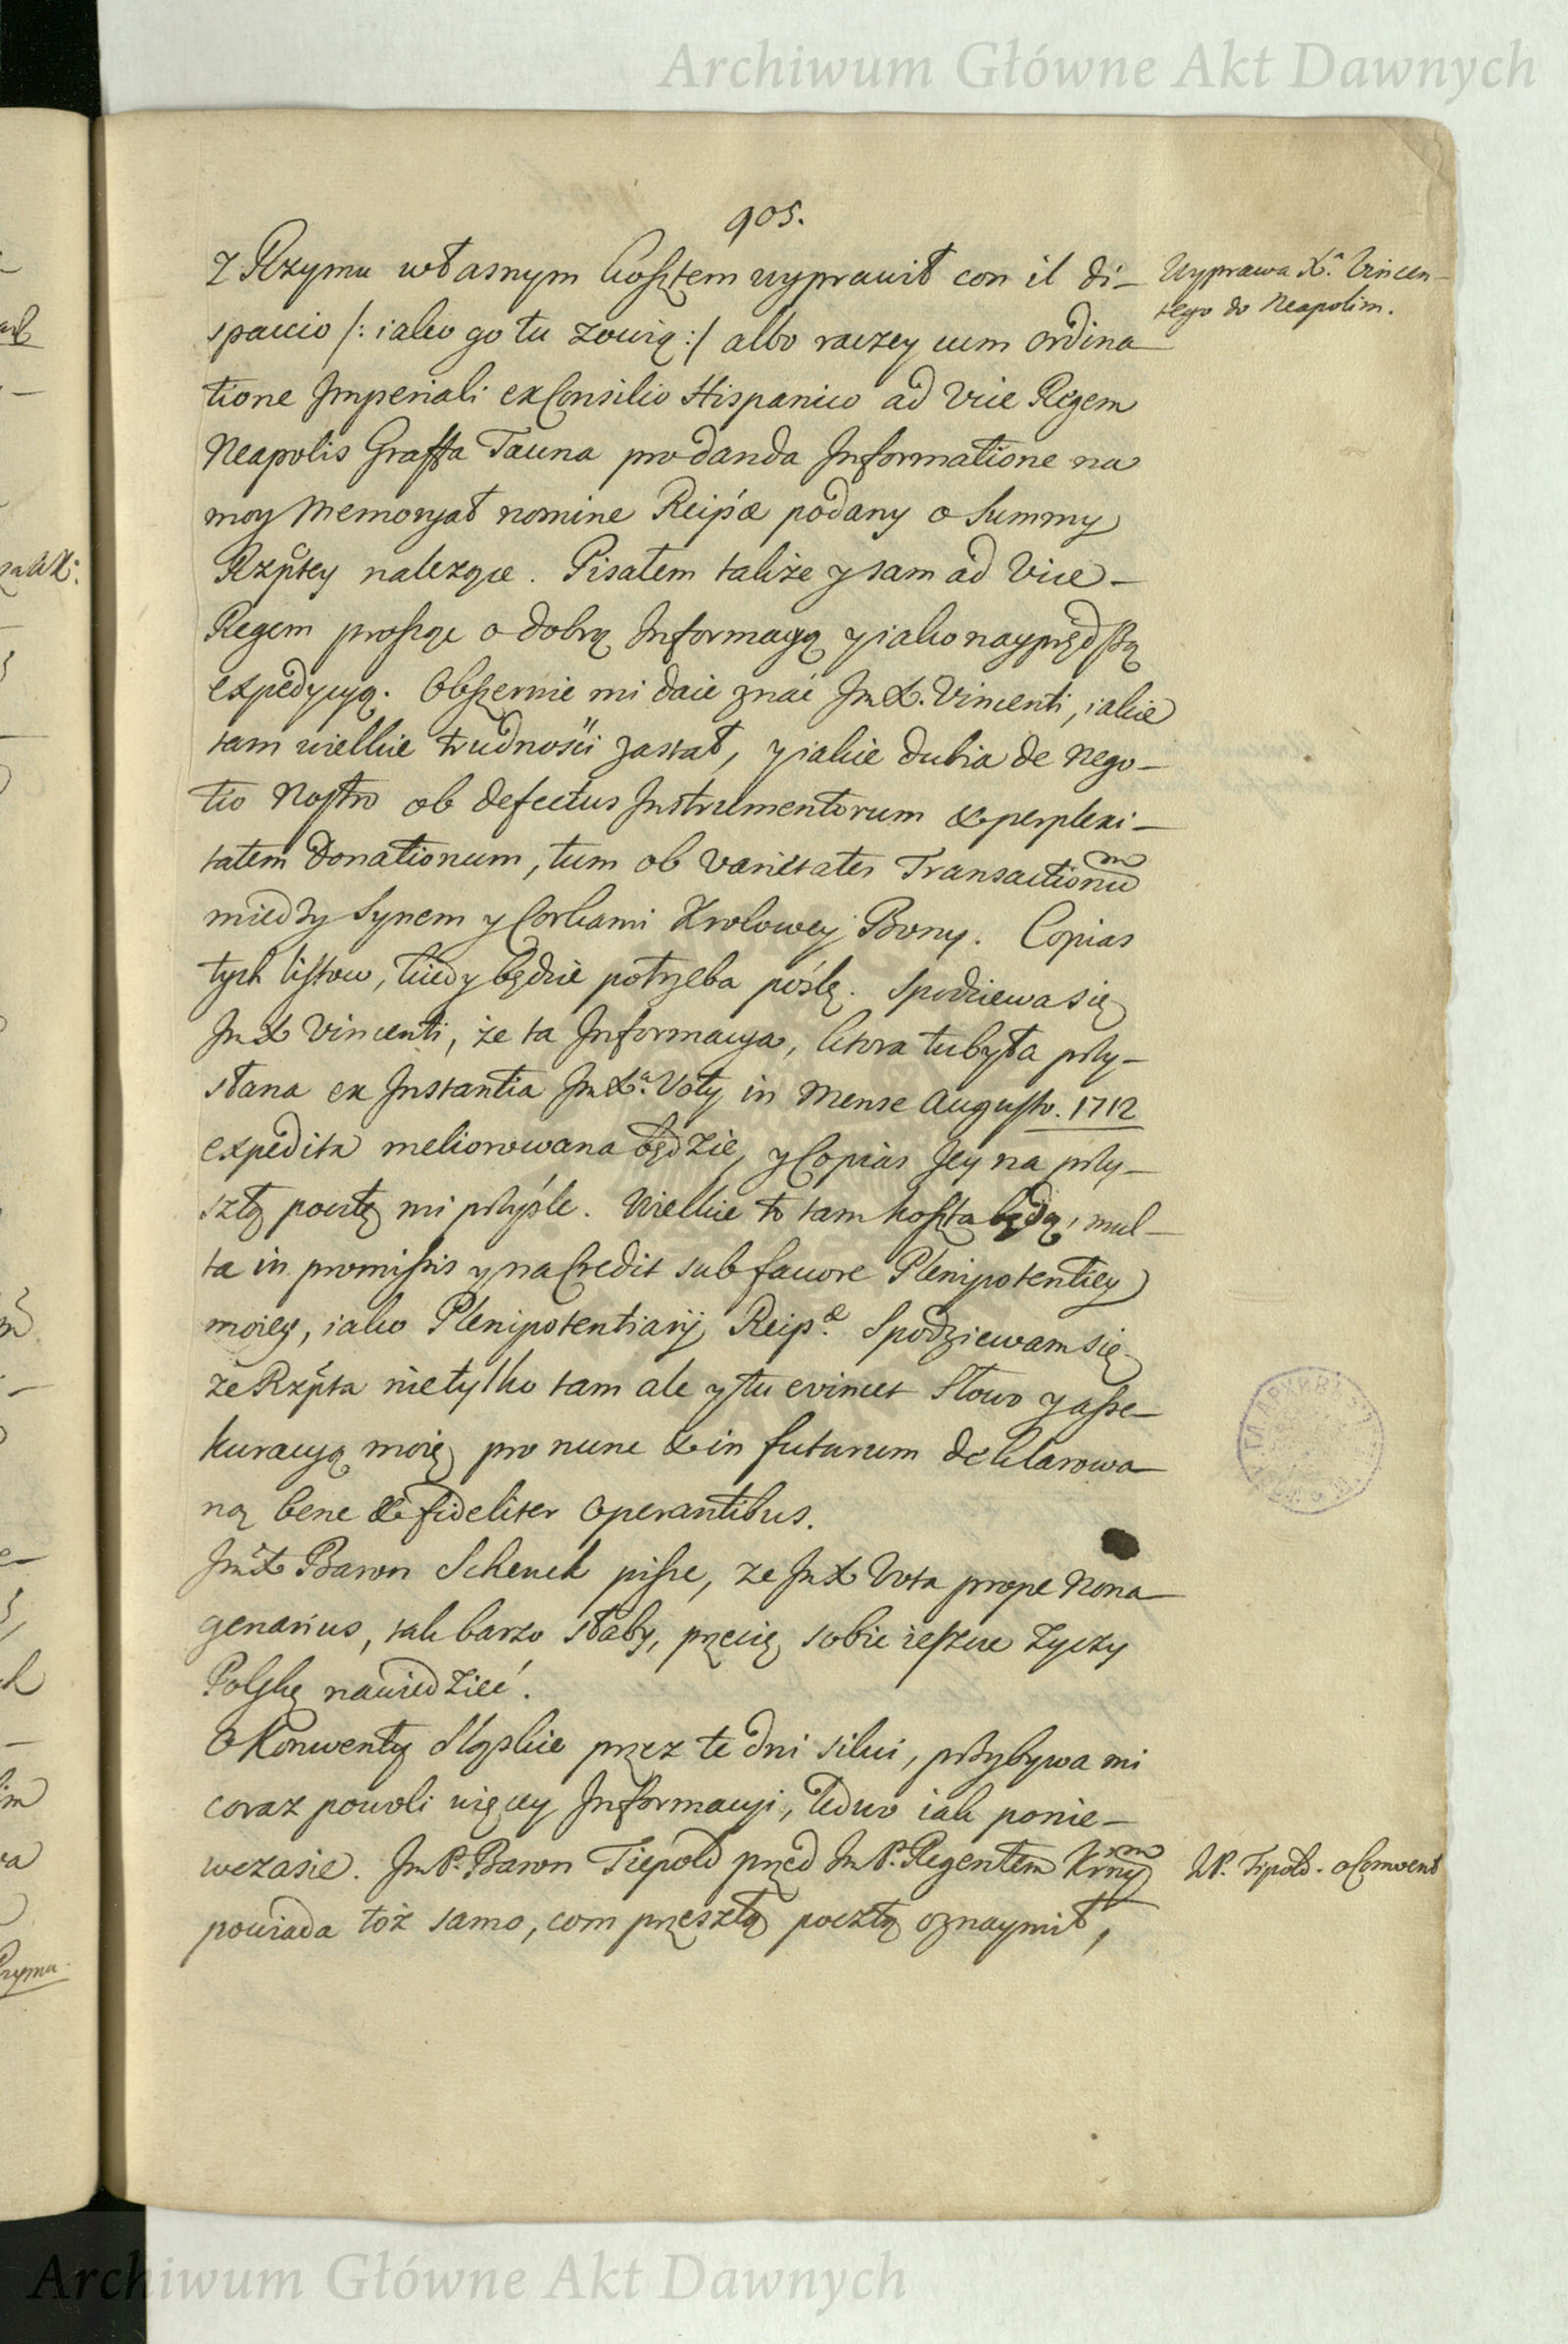 Archiwum Główne Akt Dawnych
905.
Z Rzymu własnym kosztem wyprawił con il di-
spaccio /: iako go tu zowią :/ albo raczey cum ordina
tione Imperiali ex Consilio Hispanico ad Vice Regem
Neapolis Graffa Tauna pro danda Informatione na
moy Memoryał nomine Reip'æ podany o Summy
Rzptey należące. Pisałem także y sam ad Vice-
Regem prosząc o dobrą Informacyą y iako nayprędszą
expedycyą. Obszernie mi daie znać Im X. Vincenti, iakie
tam wielkie trudności zastał, y iakie dubia de Nego-
tio Nostro ob defectus Instrumentorum & perplexi-
tatem Donationum, tum ob varietates Transactionu m
miedzy Synem y Corkami Krolowey Bony. Copias
tych listow, kiedy będzie potrzeba poślę. Spodziewa się
Im X Vincenti, że ta Informacya, ktora tu była przy-
słana ex Instantia Im Xa. Voty in Mense Augusto. 1712
expedita meliorowana będzie, y Copias Jey na przy-
szłą pocztę mi przyśle. Wielkie to tam koszta będą, mul-
ta in promissis y na Credit sub favore Plenipotencyey
moiey, iako Plenipotentiarij Reip.æ Spodziewam się
że Rzpta nie tylko tam ale y tu evincet Słowo y asse-
kuracyą moię pro nunc & in futurum deklarowa-
ną bene & fideliter operantibus.
Im X Baron Schenck pisze, że Im X Vota prope Nona-
genarius, tak barzo słaby, przecię sobie ieszcze życzy
Polskę nawiedzieć.
O Konwenty Sląskie przez te dni silui, przybywa mi
coraz powoli więcy Informacyi, ledwo iak ponie-
wczasie. Im P. Baron Tiepold przed Im P. Regentem Krnym
powiada toż samo, com przeszłą pocztą oznaymił,
Wyprawa Xa. Vincen-
tego do Neapolim.
JP. Tipold. o Convent
Archiwum Główne Akt Dawnych